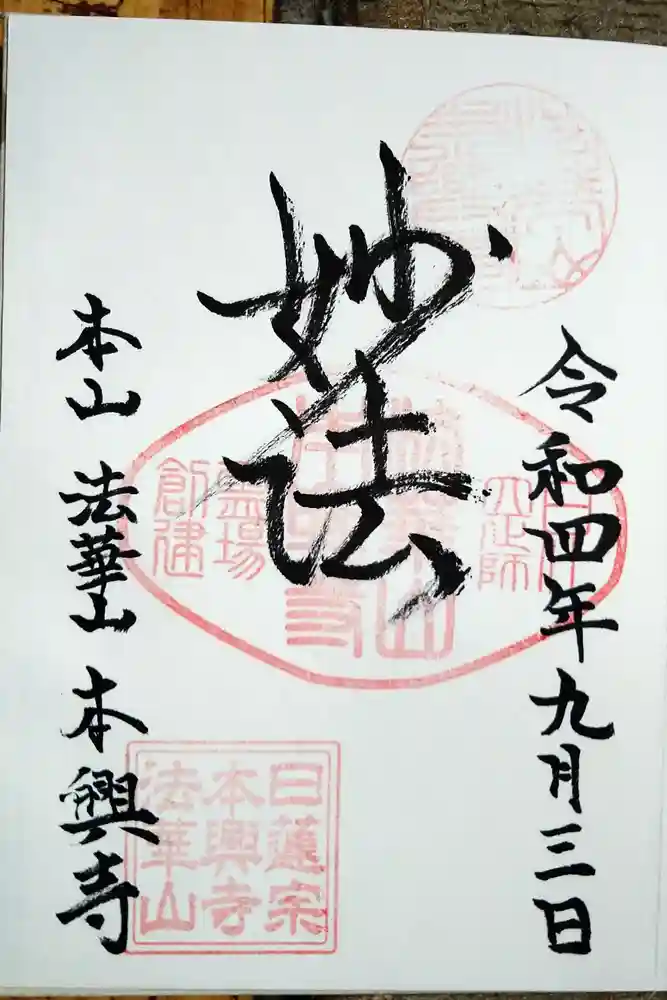 令和四年九月三日
妙法
本山 法華山 本興寺
法華山
本興寺
霊場
創建
日蓮宗
本興寺
法華山